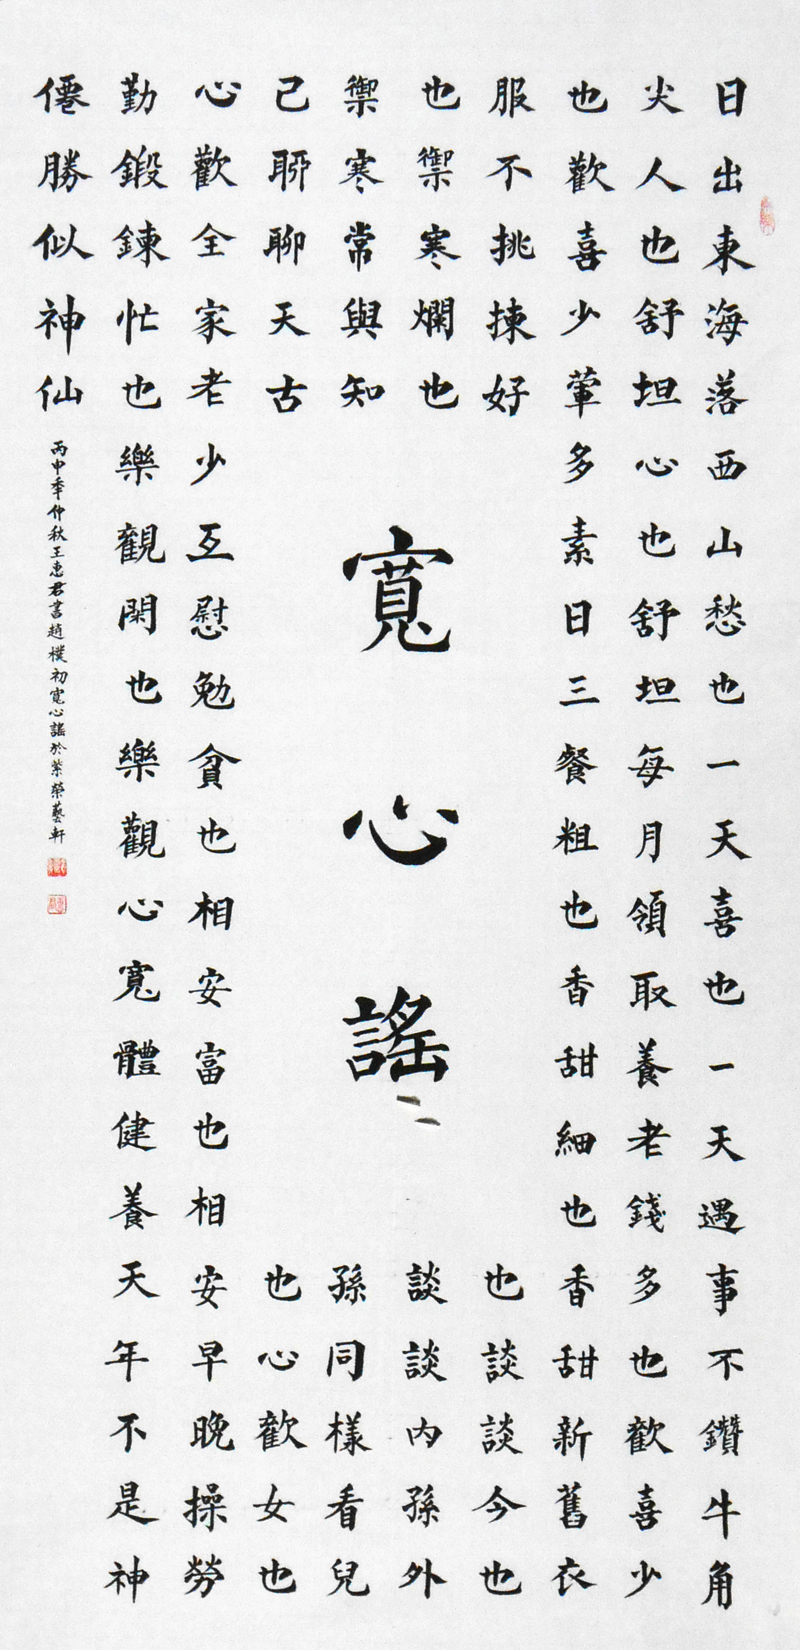 日出東海落西山愁也一天喜也一天遇事不鑽牛角
尖人也舒坦心也舒坦每月領取養老錢多也歡喜少
也歡喜少葷多素日三餐粗也香甜細也香甜新舊衣
服不挑揀好
也禦寒爛也
禦寒常與知
己聊聊天古
寬心謠
也談談今也
談談內孫外
孫同樣看兒
也心歡女也
心歡全家老少互慰勉貧也相安富也相安早晚操勞
勤鍛鍊忙也樂觀閑也樂觀心寬體健養天年不是神
僊勝似神仙
丙申秊仲秋王惠君書趙樸初寬心謠於紫榮藝軒